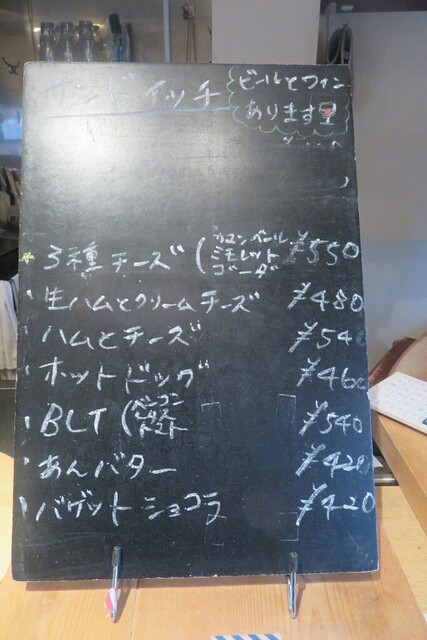 サンドイッチ
ビールとワイン
あります
3種チーズ(カマンベール ミモレット ゴーダ ¥550
・生ハムとクリームチーズ ¥480
・ハムとチーズ ¥540
・ホットドッグ ¥460
・BLT(ベーコン レタス トマト ¥540
・あんバター ¥420
・バゲットショコラ ¥420